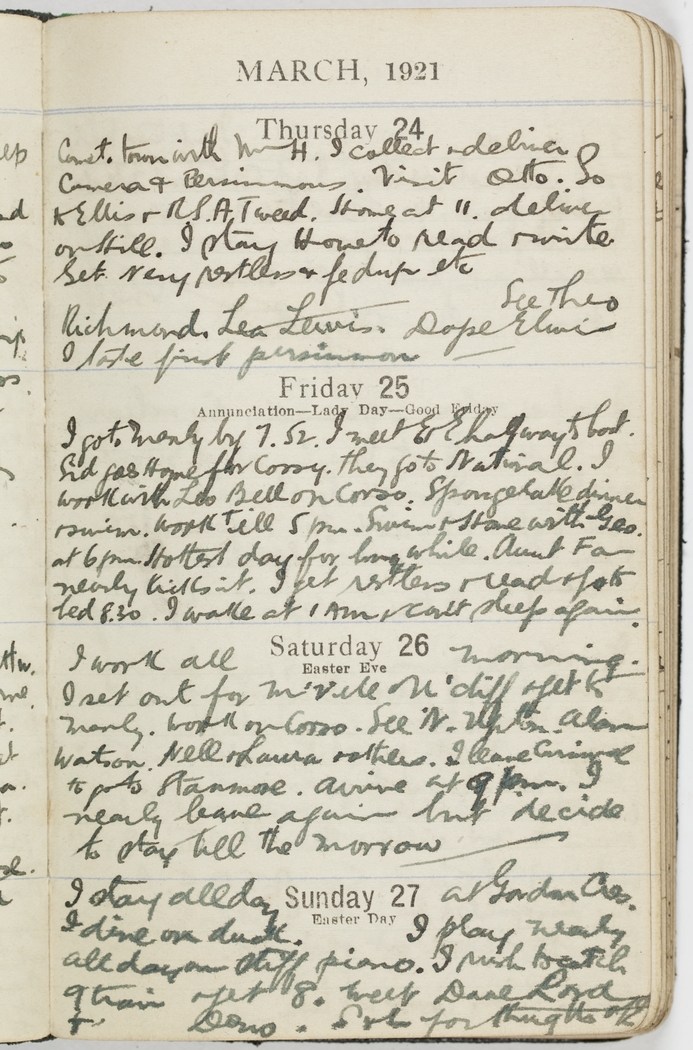 MARCH, 1921
Thursday 24
town with Mrs H. I collect & deliver
Camera & Persimmons. Visit Otto. Go
to Ellis & R.S.A. Tweed. Home at 11. deliver
on Hill. I stay Home to read & write
Get very restless & fed up etc
See Theo
Richmond. Lea Lewis. Dope
I taste first persimmon
Friday 25
Annunciation—Lady Day—Good Friday
I go to Manly by 7.52. I meet E halfway to boat.
Sid goes Home for Cossy. they go to National. I
work with Leo Bell on Corso. dinner
& swim. Work till 5 pm. Swim & Home with Geo.
at 6 pm. Hottest day for long while. Aunt Fan
nearly kicks it. I get restless & read & go to
bed 8.30. I wake at 1 AM & can't sleep again.
Saturday 26
Easter Eve
I work all morning.
I set out for & get to
Manly. Work on Corso. See N. Upton. Alan
Watson. Nell & Laura & others. I leave
to go to Stanmore. Arrive at 9 pm. I
nearly leave again but decide
to stay till the morrow
Sunday 27
Easter Day
I stay all day at Gordon Cres.
I dine on duck. I play nearly
all day on stiff piano. I rush to catch
train & get 8. meet Dave Lord
&